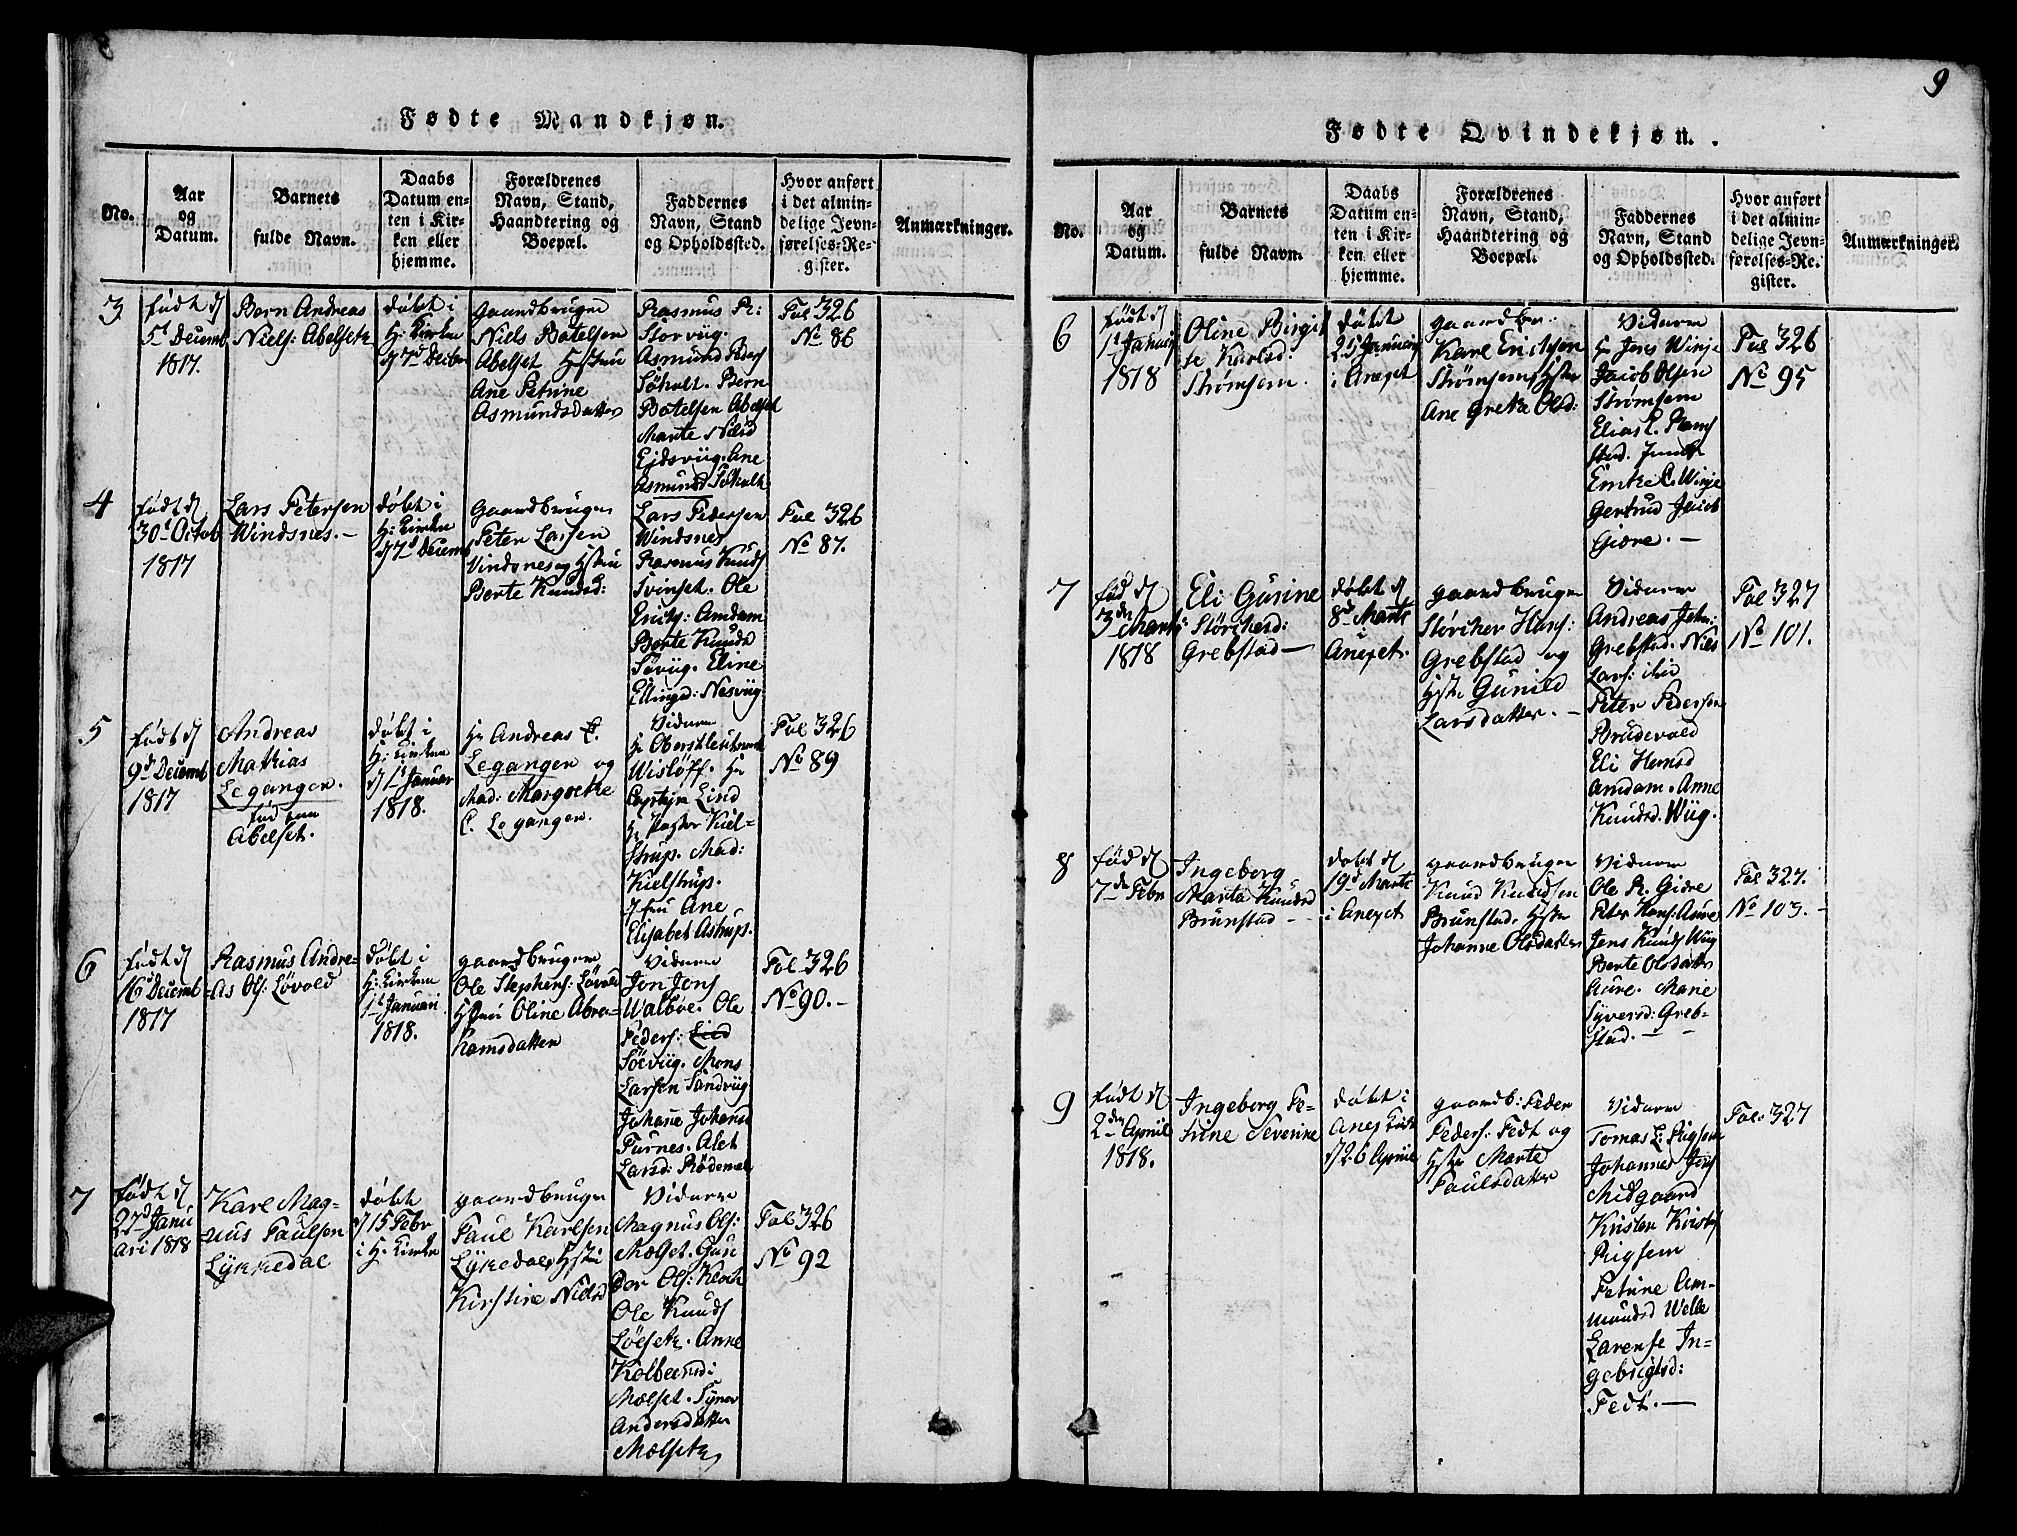 8
Fødte Mandkjøn.
No.
Aar
og
Datum.
Barnets
fulde Navn.
Daabs
Datum en-
ten i Kir-
ken eller
hjemme.
Forældrenes
Navn, Stand,
Haandtering og
Boepæl.
Faddernes
Navn, Stand
og Opholdssted.
Hvor anført
i det almin-
delige Jevn-
førelses-Re-
gister.
Anmærkninger.
3
født d
5t Decemb
1817.
Bern Andreas
Niels: Abelsetk
døbt i
H: Kirken
d 7d Decbr
gaardbruger
Niels Botelsen
Abelset Hstrui
Ane Petrine
Asmundsdatter
Rasmus R:
Storviig.
Asmund Peders
Søholt. Bern
Botelsen Abelset
Marte Nielsd
Eidsviig. Ane
Asmundsd Søholt
Fol 326
No 86
4
født d
30t Octob
1817
Lars Petersen
Windsnes. —
døbt i
H: Kirken
d 7d Decemb
gaardbruger
Peter Larsen
Vindsnes og Hstrui
Berte Knudsd:
Lars Pedersen
Windsnes
Rasmus Knuds
Ole
Erits: Amdam
Berte Knudsd
Søviig. Eline
Ellingsd: Nesviig
Fol 326
No 87.
5
født d
9d Decemb
1817
Andreas
Mathias
Legangen.
Abelset.
døbt i
H: Kirken
d 1t Januar
1818.
Hr Andreas E.
Legangen og
Mad: Margrethe
E. Legangen.
Vidnerne
Hr Oberstleutnant
Wisløff. Hr
Captejn Lind
Hr Pastor Kiel-
strup. Mad:
Kielstrup.
Jfru Ane
Elisabet Astrup.
Fol 326
No 89
6
født d
16d Decemb
1817
Rasmus Andre-
as Ols: Løvold
Døbt i
H: Kirken
1t Januari
1818.
gaardbrugern
Ole Stephens: Løvold
Hstrui Oline Abra-
hamsdatter
Vidnerne
Jon Jons
Walbøe. Ole
Peders:
Søeviig. Mons
Larsen Sandviig
Johane Johansd
Furnes. Alet
Larsd: Rødeval
Fol 326
No 90. —
7
født d
27d Janu
ari 1818
Karl Mag-
nus Paulsen
Lykkedal
døbt
d 15 Febr
i H: Kirken
gaardbruger
Paul Karlsen
Lykedal Hstrui
Kirstine Nielsd
Vidnerne
Magnus Ols:
Mælset. Gun
der Ols:
Ole Knuds
Løesetk. Anne
Kolbeensd:
Mælset. Syner
Andersdatter
Mælsetk
Fol 326
No 92
9
Fødte Qvindekjøn.
No.
Aar
og
Datum.
Barnets
fulde Navn.
Daabs
Datum en-
ten i Kir-
ken eller
hjemme.
Forældrenes
Navn, Stand,
Haandtering og
Boepæl.
Faddernes
Navn, Stand
og Opholdssted.
Hvor anført
i det almin-
delige Jevn-
førelses-Re-
gister.
Anmærkninger.
6
født d
1t Januarj
1818
Oline Birgit
te Karlsd:
Strømsem.
døbt
25 Januarj
i Anexet
gaardbr:
Karl Ericksen
Strømsem, Hstru
Ane Greta Olsd:
Vidnerne
Hr Jens Winje
Jacob Olsen
Strømsem
Elias E. Rams
stad. Jomfr
Emke E. Winje
Gertrud Jacob
Giøre. —
Fol 326
No 95
7
fød d
3die Marts
1818
Eli Gurine
Størkersd:
Grebstad —
døbt d
8d Marts
i
Anexet
gaardbruger
Størcker Hans:
Grebstad og
Hstr Gunild
Larsdatter. —
Vidnerne
Andreas John:
Grebstad. Niels
Lars: ibid
Peter Pedersen
Brudevold
Eli Hansd
Amdam. Anne
Knudsd. Wiig.
Fol 327
No 101.
8
fød d
7de Febr
Ingeborg
Marta Knudsd
Brunstad —
døbt d
19d Marts
i Anexet
gaardbruger
Knud Knudsen
Brunstad, Hstru
Johanne Olsdatter
Vidnerne
Ole R. Giøre
Peter Hans: Aure
Jens Knuds Wiig
Berte Olsdatter
Aure. Marie
Syversd: Greb-
stad. —
Fol 327.
No 103. —
9
født d
2den April
1818.
Ingeborg Pe-
trine Severine
døbt i
Anex Kirk
d 26 April
gaardb: Peder
Peders: Fedt og
Hstr Marte
Paulsdatter
Vidnerne
Tomas L: Rigsem
Johannes Jons
Midgaard
Krister Kirsts
Rigsem
Petrine Am-
mundsd Welle
Larense In-
gebrigtsd:
Fedt. —
Fol: 327